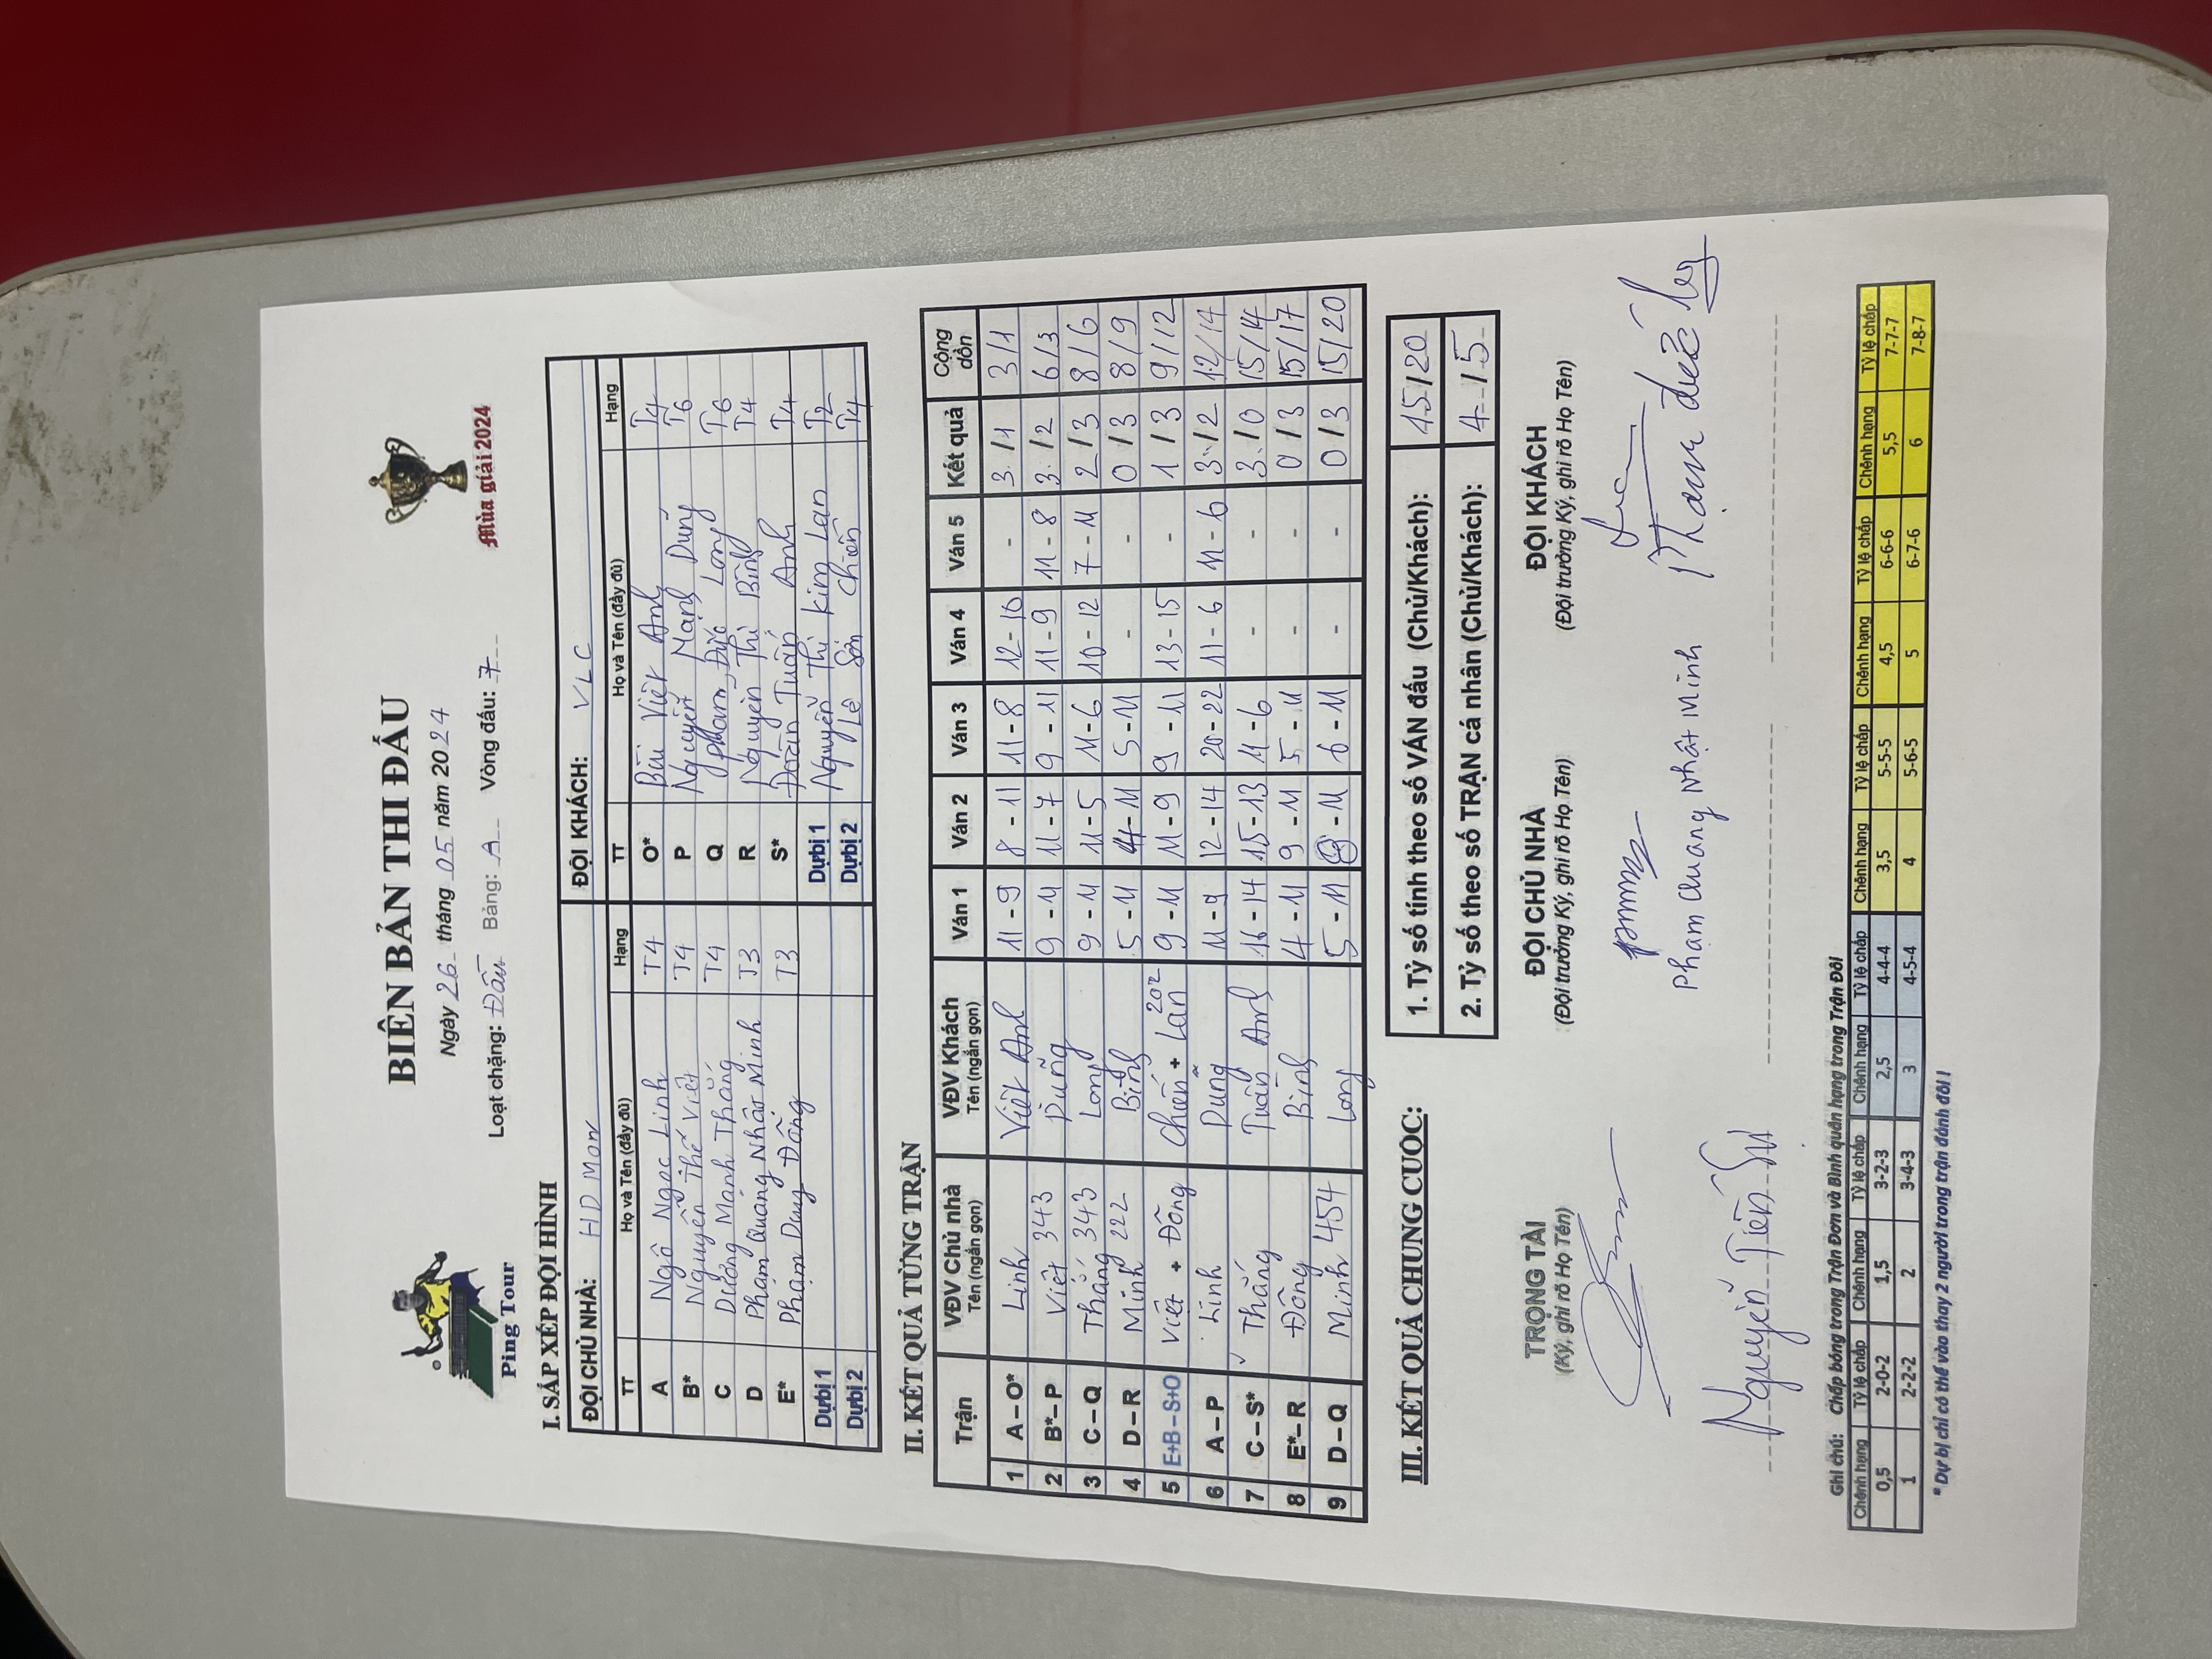 BIÊN BẢN THI ĐẤU
Ngày 26 tháng 05 năm 2024
Loạt chặng: Đầu Bảng: A Vòng đấu: 7
Ping Tour
Mùa giải 2024
I. SẮP XẾP ĐỘI HÌNH
ĐỘI CHỦ NHÀ: HD Mon ĐỘI KHÁCH: VLC
TT Họ và Tên (đầy đủ) Hạng TT Họ và Tên (đầy đủ) Hạng
A Ngô Ngọc Linh T4 O* Bùi Việt Anh T4
B* Nguyễn Thế Việt T4 P Nguyễn Mạnh Dũng T6
C Dương Mạnh Thắng T4 Q Phạm Đức Long T6
D Phạm Quang Nhật Minh T3 R Nguyễn Thị Bình T4
E* Phạm Duy Đông T3 S* Đoàn Tuấn Anh T4
Dự bị 1 Dự bị 1 Nguyễn Thị Kim Lan T2
Dự bị 2 Dự bị 2 Nguyễn Lê Sơn Chiến T4
II. KẾT QUẢ TỪNG TRẬN
Trận VĐV Chủ nhà Tên (ngắn gọn) VĐV Khách Tên (ngắn gọn) Ván 1 Ván 2 Ván 3 Ván 4 Ván 5 Kết quả Cộng dồn
1 A – O* Linh Việt Anh 11 - 9 8 - 11 11 - 8 12 - 10 - 3 / 1 3 / 1
2 B* – P Việt 343 Dũng 9 - 11 11 - 7 9 - 11 11 - 9 11 - 8 3 / 2 6 / 3
3 C – Q Thắng 343 Long 9 - 11 11 - 5 11 - 6 10 - 12 7 - 11 2 / 3 8 / 6
4 D – R Minh 222 Bình 5 - 11 4 - 11 5 - 11 - - 0 / 3 8 / 9
5 E+B – S+O Việt + Đông Chiến + Lan 202 9 - 11 11 - 9 9 - 11 13 - 15 - 1 / 3 9 / 12
6 A – P Linh Dũng 11 - 9 12 - 14 20 - 22 11 - 6 11 - 6 3 / 2 12 / 14
7 C – S* Thắng Tuấn Anh 16 - 14 15 - 13 11 - 6 - - 3 / 0 15 / 14
8 E* – R Đông Bình 4 - 11 9 - 11 5 - 11 - - 0 / 3 15 / 17
9 D – Q Minh 454 Long 5 - 11 - 11 6 - 11 - - 0 / 3 15 / 20
III. KẾT QUẢ CHUNG CUỘC:
1. Tỷ số tính theo số VÁN đấu (Chủ/Khách): 15 / 20
2. Tỷ số theo số TRẬN cá nhân (Chủ/Khách): 4 / 5
TRỌNG TÀI ĐỘI CHỦ NHÀ ĐỘI KHÁCH
(Ký, ghi rõ Họ Tên) (Đội trưởng Ký, ghi rõ Họ Tên) (Đội trưởng Ký, ghi rõ Họ Tên)
Nguyễn Tiến Sử Phạm Quang Nhật Minh Phạm Đức
Ghi chú: Chấp bóng trong Trận Đơn và Bình quân hạng trong Trận Đôi
Chênh hạng Tỷ lệ chấp Chênh hạng Tỷ lệ chấp Chênh hạng Tỷ lệ chấp Chênh hạng Tỷ lệ chấp Chênh hạng Tỷ lệ chấp Chênh hạng Tỷ lệ chấp
0,5 2-0-2 1,5 3-2-3 2,5 4-4-4 3,5 5-5-5 4,5 6-6-6 5,5 7-7-7
1 2-2-2 2 3-4-3 3 4-5-4 4 5-6-5 5 6-7-6 6 7-8-7
* Dự bị chỉ có thể vào thay 2 người trong trận đánh đôi !